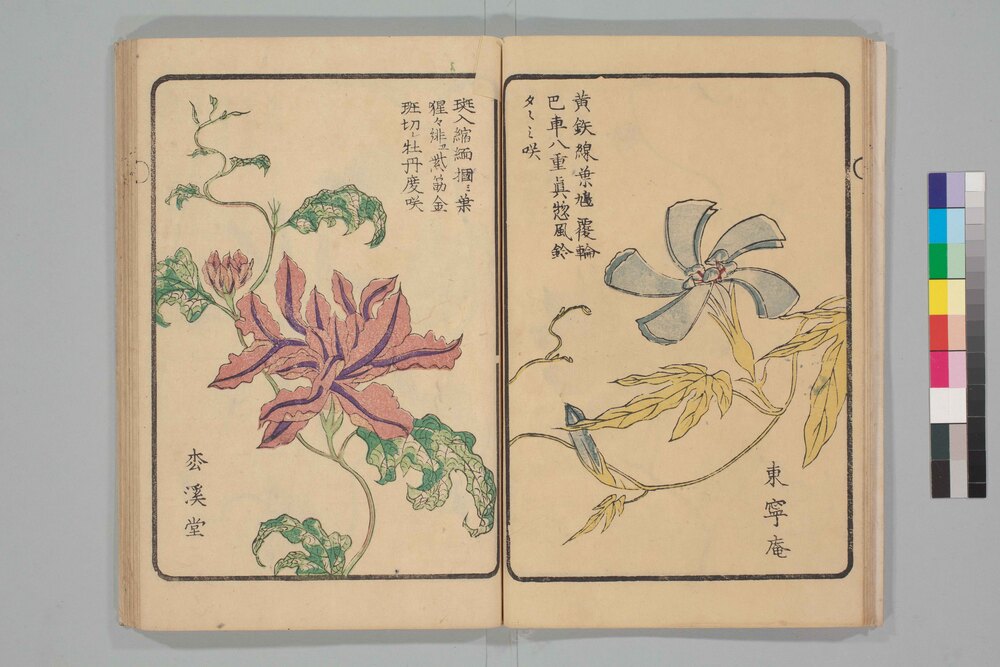 黄鉄線葉尡覆輪
巴車八重真惣風鈴
タヽミ咲
東寧庵
斑入縮緬掴ミ葉
猩々緋ヱ紫筋金
斑切レ牡丹度咲
枩溪堂